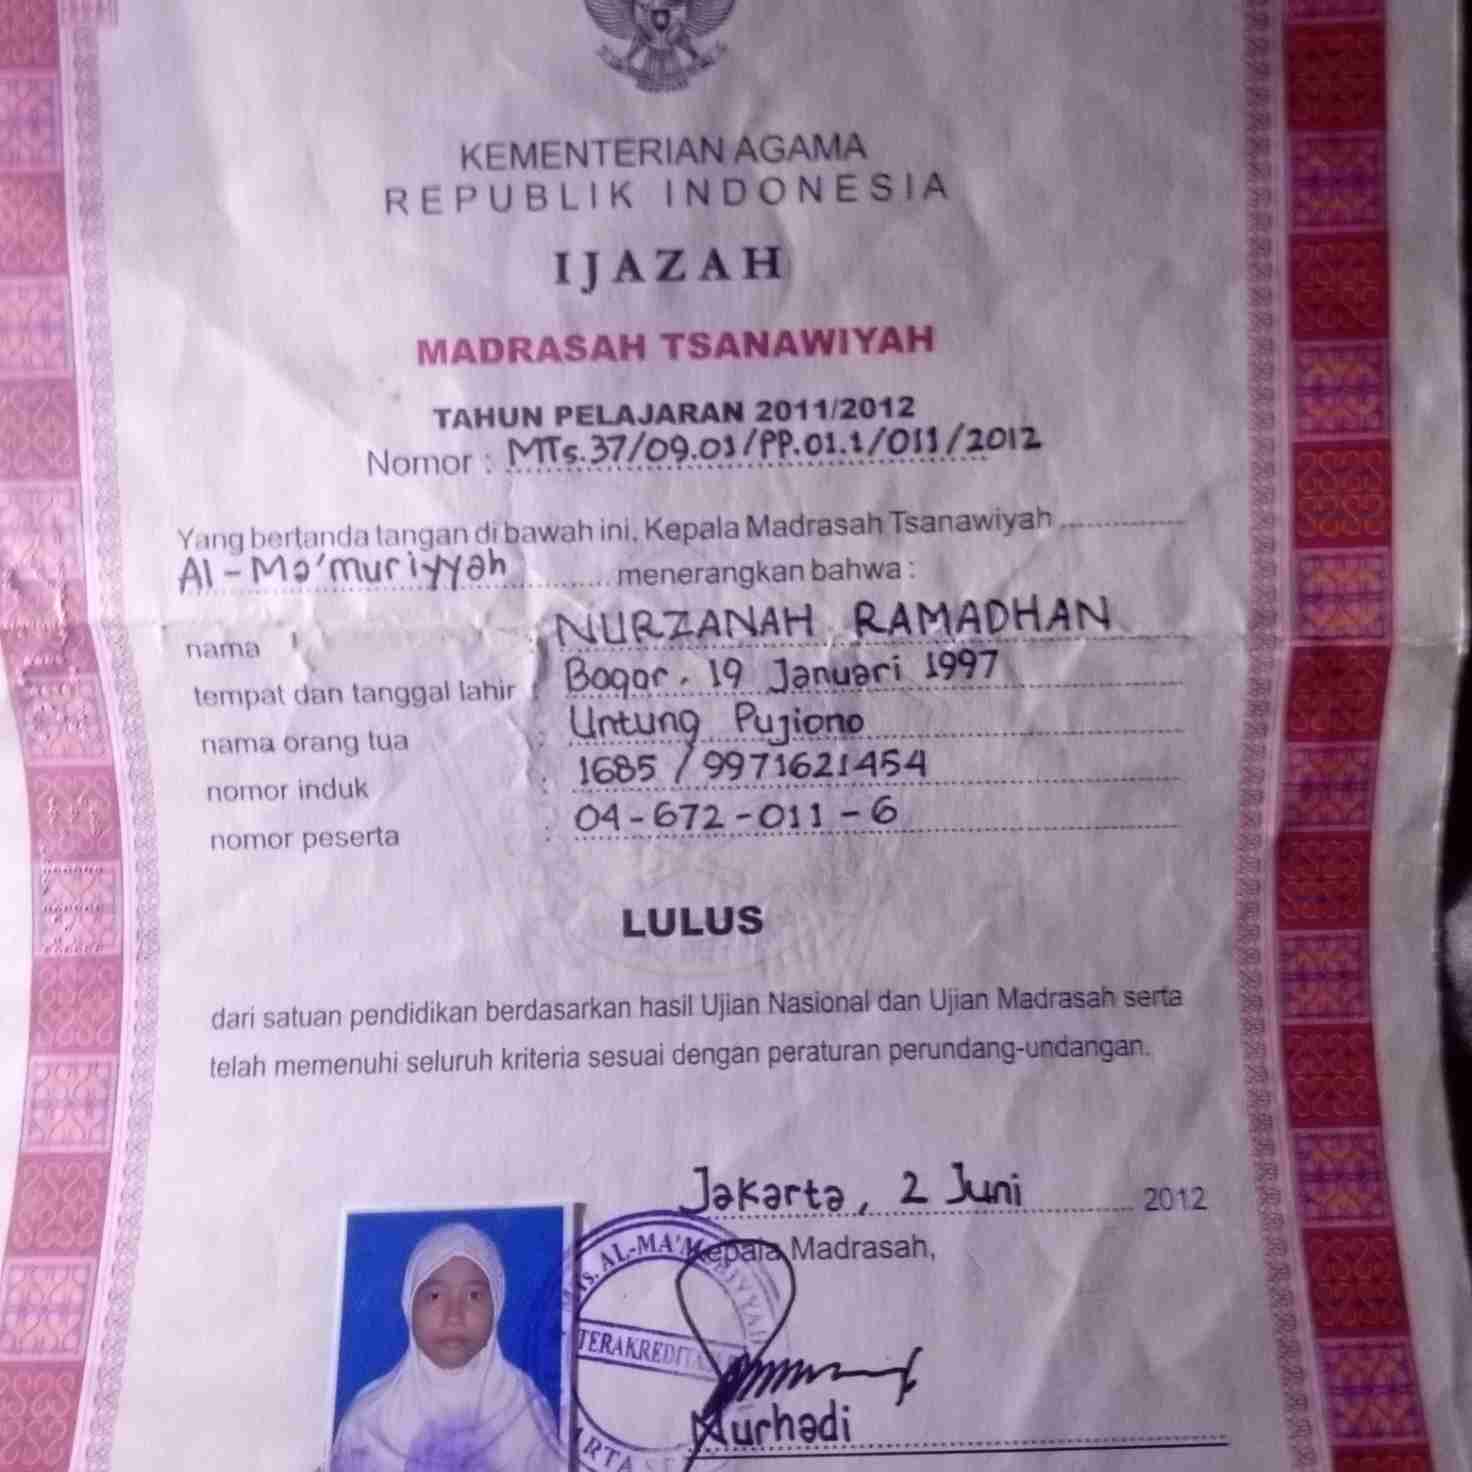 KEMENTERIAN AGAMA
REPUBLIK INDONESIA
IJAZAH
MADRASAH TSANAWIYAH
TAHUN PELAJARAN 2011/2012
Nomor : MTs.37/09.01/PP.01.1/011/2012
Yang bertanda tangan di bawah ini, Kepala Madrasah Tsanawiyah
Al-Ma'muriyyah menerangkan bahwa :
nama : NURZANAH RAMADHAN
tempat dan tanggal lahir : Bogor, 19 Januari 1997
nama orang tua : Untung Pujiono
nomor induk : 1685 / 9971621454
nomor peserta : 04-672-011-6
LULUS
dari satuan pendidikan berdasarkan hasil Ujian Nasional dan Ujian Madrasah serta
telah memenuhi seluruh kriteria sesuai dengan peraturan perundang-undangan.
Jakarta, 2 Juni 2012
Kepala Madrasah,
MTs. AL-MA'MURIYYAH
Murhadi